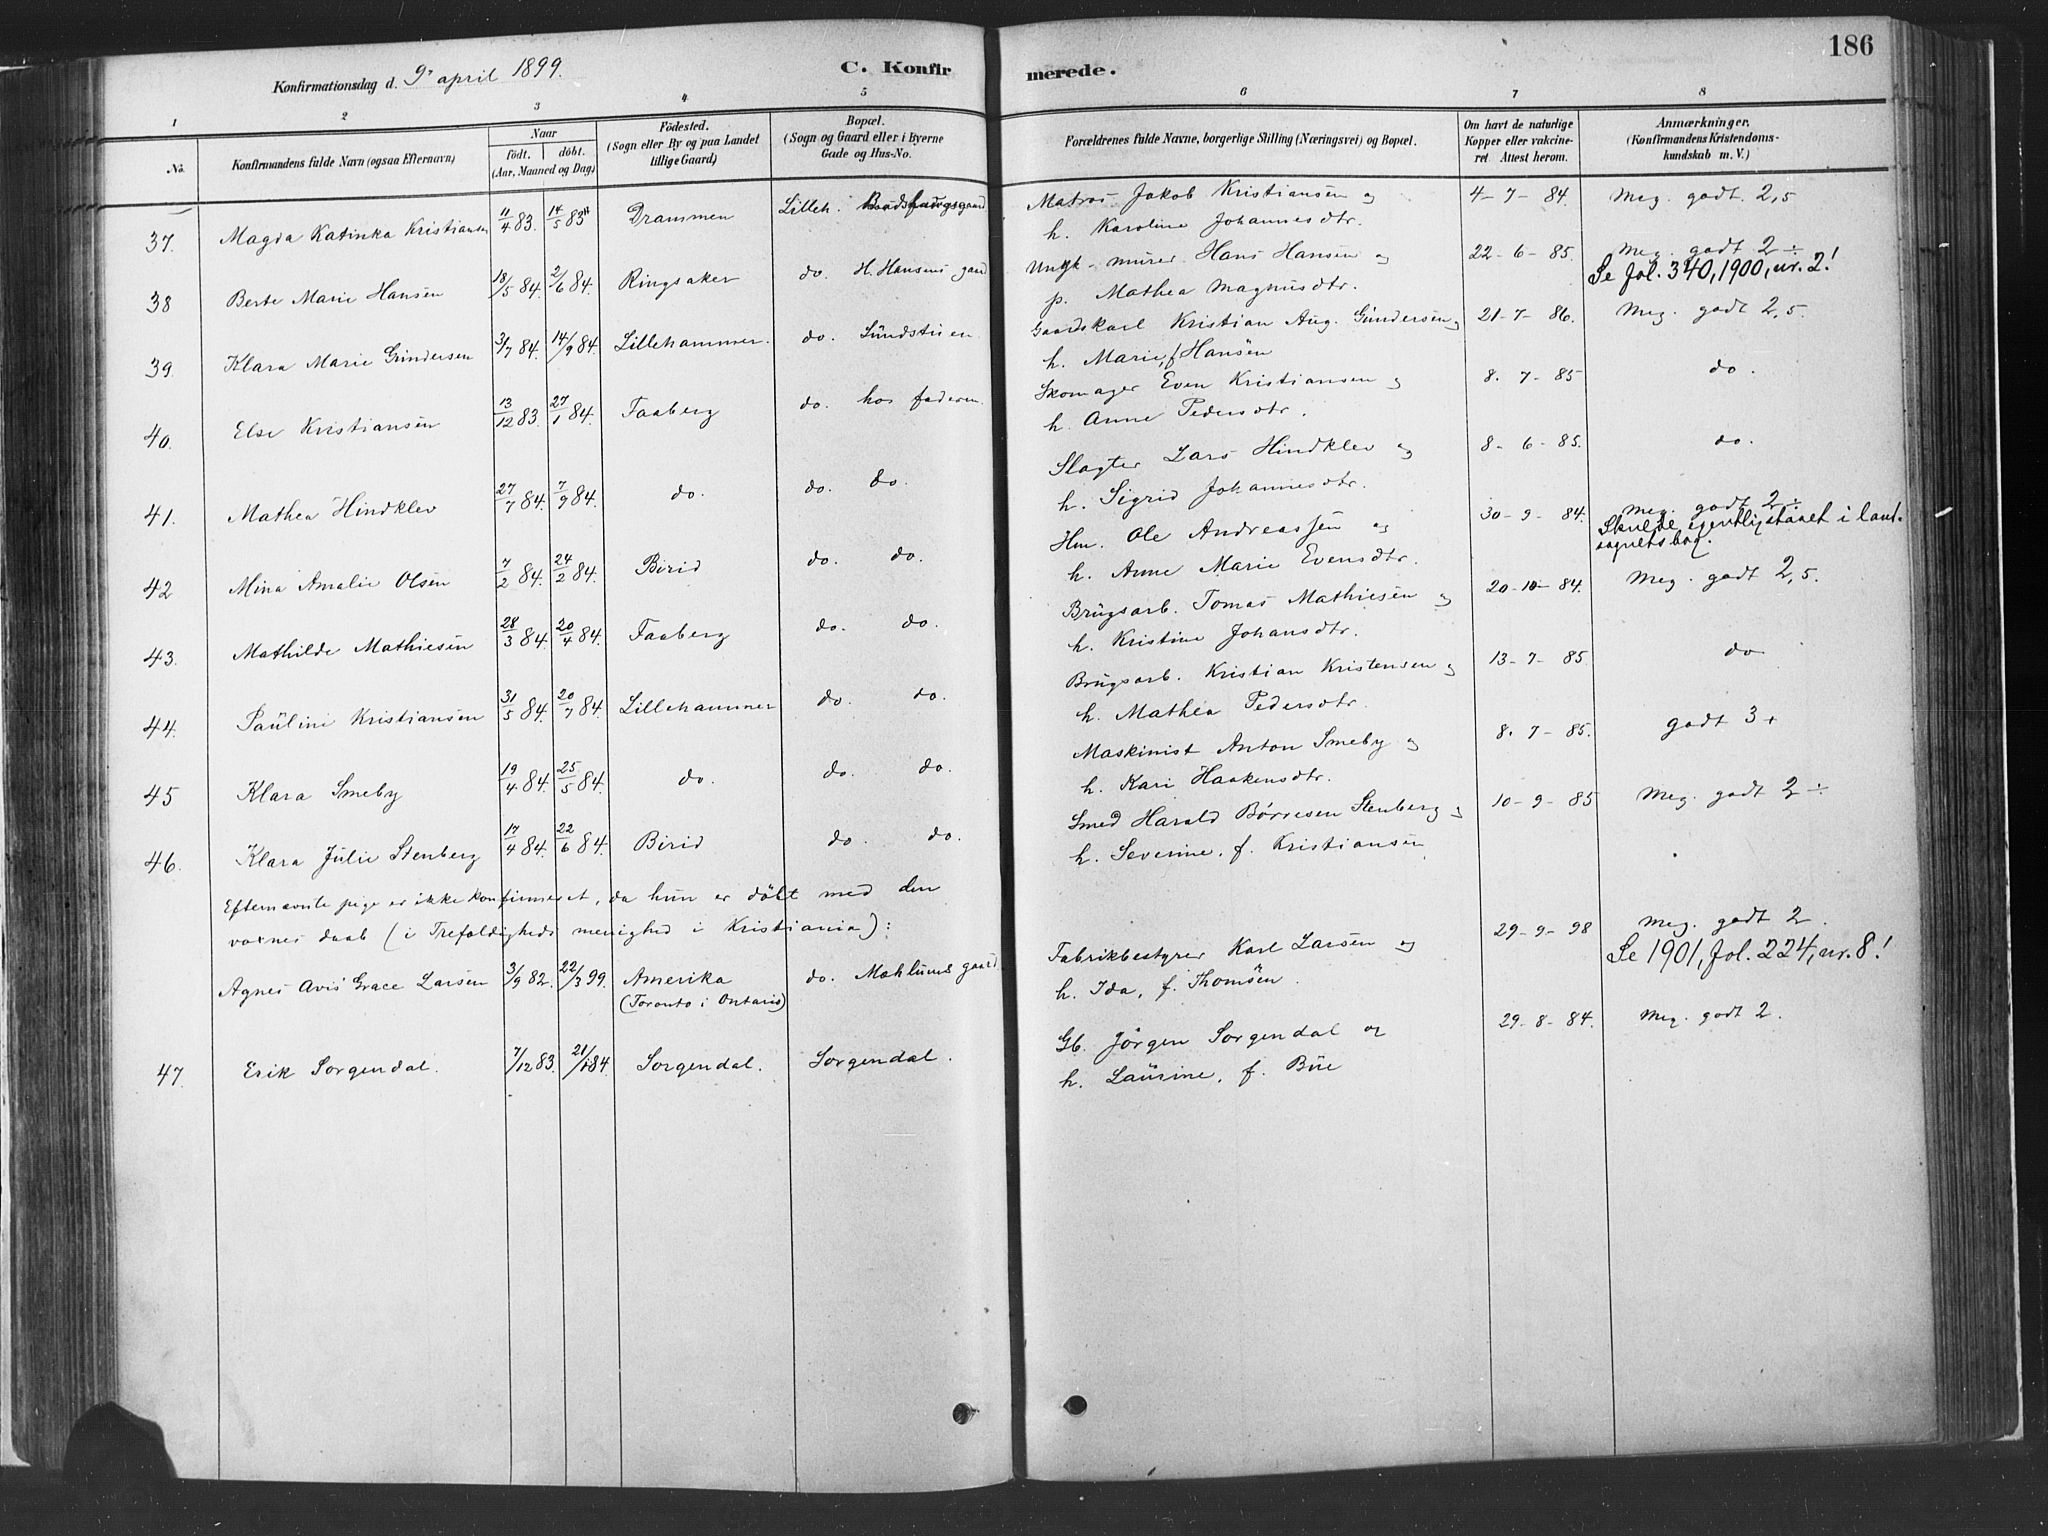 186
Konfirmationsdag d. 9de april 1899.
C. Konfirmerede.
1 2 3 4 5 6 7 8
No.
Konfirmandens fulde Navn (ogsaa Efternavn)
Naar
födt. döbt.
(Aar, Maaned og Dag)
Födested.
(Sogn eller By og paa Landet
tillige Gaard)
Bopæl.
(Sogn og Gaard eller i Byerne
Gade og Hus-No.
Forældrenes fulde Navne, borgerlige Stilling (Næringsvei) og Bopæl.
Om havt de naturlige
Kopper eller vakcine-
ret Attest herom.
Anmærkninger.
(Konfirmandens Kristendoms-
kundskab m. V.)
37. Magda Katinka Kristiansen 11/4 83. 14/5 83 Drammen Lilleh. Matros Jakob Kristiansen og 4-7-84. Meg. godt. 2,5
h. Karoline Johannesdtr.
38 Berte Marie Hansen 18/5 84. 2/6 84. Ringsaker do. H. Hansens gaard Ungk. murer Hans Hansen og 22-6-85. Meg. godt 2÷
p. Mathea Magnusdtr. Se fol. 340, 1900, nr. 2!
39. Klara Marie Gundersen 3/7 84. 14/9 84. Lillehammer. do. Sundstuen Gaardskarl Kristian Aug. Gundersen og 21-7-86. Meg. godt 2,5.
h. Marie, f. Hansen
40. Else Kristiansen 13/12 83. 27/1 84. Faaberg do. hos faderen. Skomager Even Kristiansen og 8-7-85 do.
h. Anne Pedersdtr.
41. Mathea Hindklev 27/7 84. 7/9 84. do. do. do. Slagter Lars Hindklev og 8-6-85. do.
h. Sigrid Johannesdtr.
42 Mina Amalie Olsen 7/2 84. 24/2 84. Birid do. do. Hm. Ole Andreassen og 30-9-84. Meg. godt 2÷
h. Anne Marie Evensdtr. Skulde egentlig staaet i land-
sognets bog.
43. Mathilde Mathiesen 28/3 84. 20/4 84. Faaberg do. do. Brugsarb. Tomas Mathiesen og 20-10-84. Meg. godt 2,5.
h. Kristine Johansdtr.
44. Pauline Kristiansen 31/5 84. 20/7 84. Lillehammer do. do. Brugsarb. Kristian Kristensen og 13-7-85. do
h. Mathea Pedersdtr.
45 Klara Smeby 19/4 84. 25/5 84. do. do. do. Maskinist Anton Smeby og 8-7-85. godt 3+
h. Kari Haakensdtr.
46. Klara Julie Stenberg 17/4 84. 22/6 84. Birid do. do. Smed Harald Börresen Stenberg og 10-9-85 Meg. godt 2÷
h. Severine, f. Kristiansen
Efternævnte pige er ikke konfirmeret, da hun er döbt med den
voxnes daab (i Trefoldigheds menighed i Kristiania):
Agnes Avis Grace Larsen 3/9 82. 22/3 99. Amerika (Toronto i Ontario) do. Mæhlums gaard Fabrikbestyrer Karl Larsen og 29-9-98 Meg. godt 2.
h. Ida, f. Thomsen. Se 1901, fol. 224, nr. 8!
47. Erik Sorgendal. 7/12 83. 21/1 84. Sorgendal. Sorgendal. Gb. Jörgen Sorgendal og 29-8-84. Meg. godt 2.
h. Laurine, f. Bue